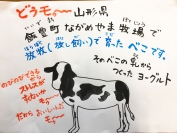 どうモ〜 山形県
飯豊町ながめやま牧場で
放牧(放し飼い)で育ったべこです。
そのべこの乳から
つくったヨーグルト
のびのびできるから
ストレスが
すくないから
モ〜
だからおいしいんだ
モ〜